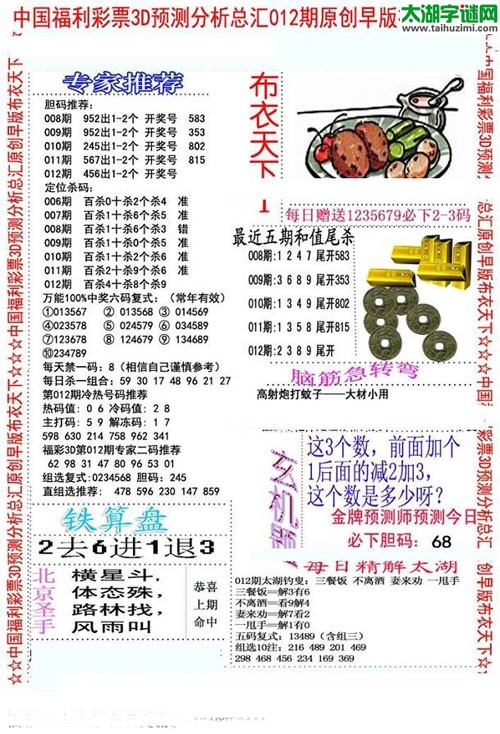 太湖字谜网
www.taihuzimi.com
中国福利彩票3D预测分析总汇012期原创早版
专家推荐
胆码推荐:
008期 952出1-2个 开奖号 583
009期 952出1-2个 开奖号 353
010期 245出1-2个 开奖号 802
011期 567出1-2个 开奖号 815
012期 456出1-2个 开奖号
定位杀码:
006期 百杀0十杀2个杀4 准
007期 百杀1十杀6个杀5 准
008期 百杀1十杀6个杀3 错
009期 百杀1十杀1个杀0 准
010期 百杀1十杀7个杀6 准
011期 百杀2十杀9个杀6 准
012期 百杀4十杀8个杀9
万能100%中奖六码复式: (常年有效)
①013567 ② 013568 ③ 014569
④023578 ⑤ 024579 ⑥ 034589
⑦123678 ⑧ 124679 ⑨ 134689
⑩234789
每天禁一码: 8 (相信自己谨慎参考)
每日杀一组合: 59 30 17 48 96 21 27
第012期冷热号码推荐
热码值: 0 6 冷码值: 2 8
主打码: 5 9 解冻码: 1 7
598 630 214 758 962 341
福彩3D第012期专家二码推荐
62 98 31 47 80 96 53 01
组选复式: 0234568 胆码: 245
直组选推荐: 478 596 230 147 859
铁算盘
2去6进1退3
北京圣手
横星斗,
体态殊,
路林找,
风雨叫
恭喜
上期
命中
布衣天下
每日赠送1235679必下2-3码
最近五期和值尾杀
008期:1 2 4 7 尾开583
009期:3 6 8 9 尾开353
010期:1 3 4 9 尾开802
011期:1 3 5 8 尾开815
012期:2 3 8 9 尾开
脑筋急转弯
高射炮打蚊子——大材小用
玄机题
这3个数,前面加个
1后面的减2加3,
这个数是多少呀?
金牌预测师预测今日
必下胆码: 68
每日精解太湖
012期太湖钓叟: 三餐饭 不离酒 妻来劝 一甩手
三餐饭==解3有6
不离酒==看9解4
妻来劝==解7看2
一甩手==解1有0
五码复式: 13489 (含组三)
组选10注: 216 489 201 469
298 468 456 234 169 369